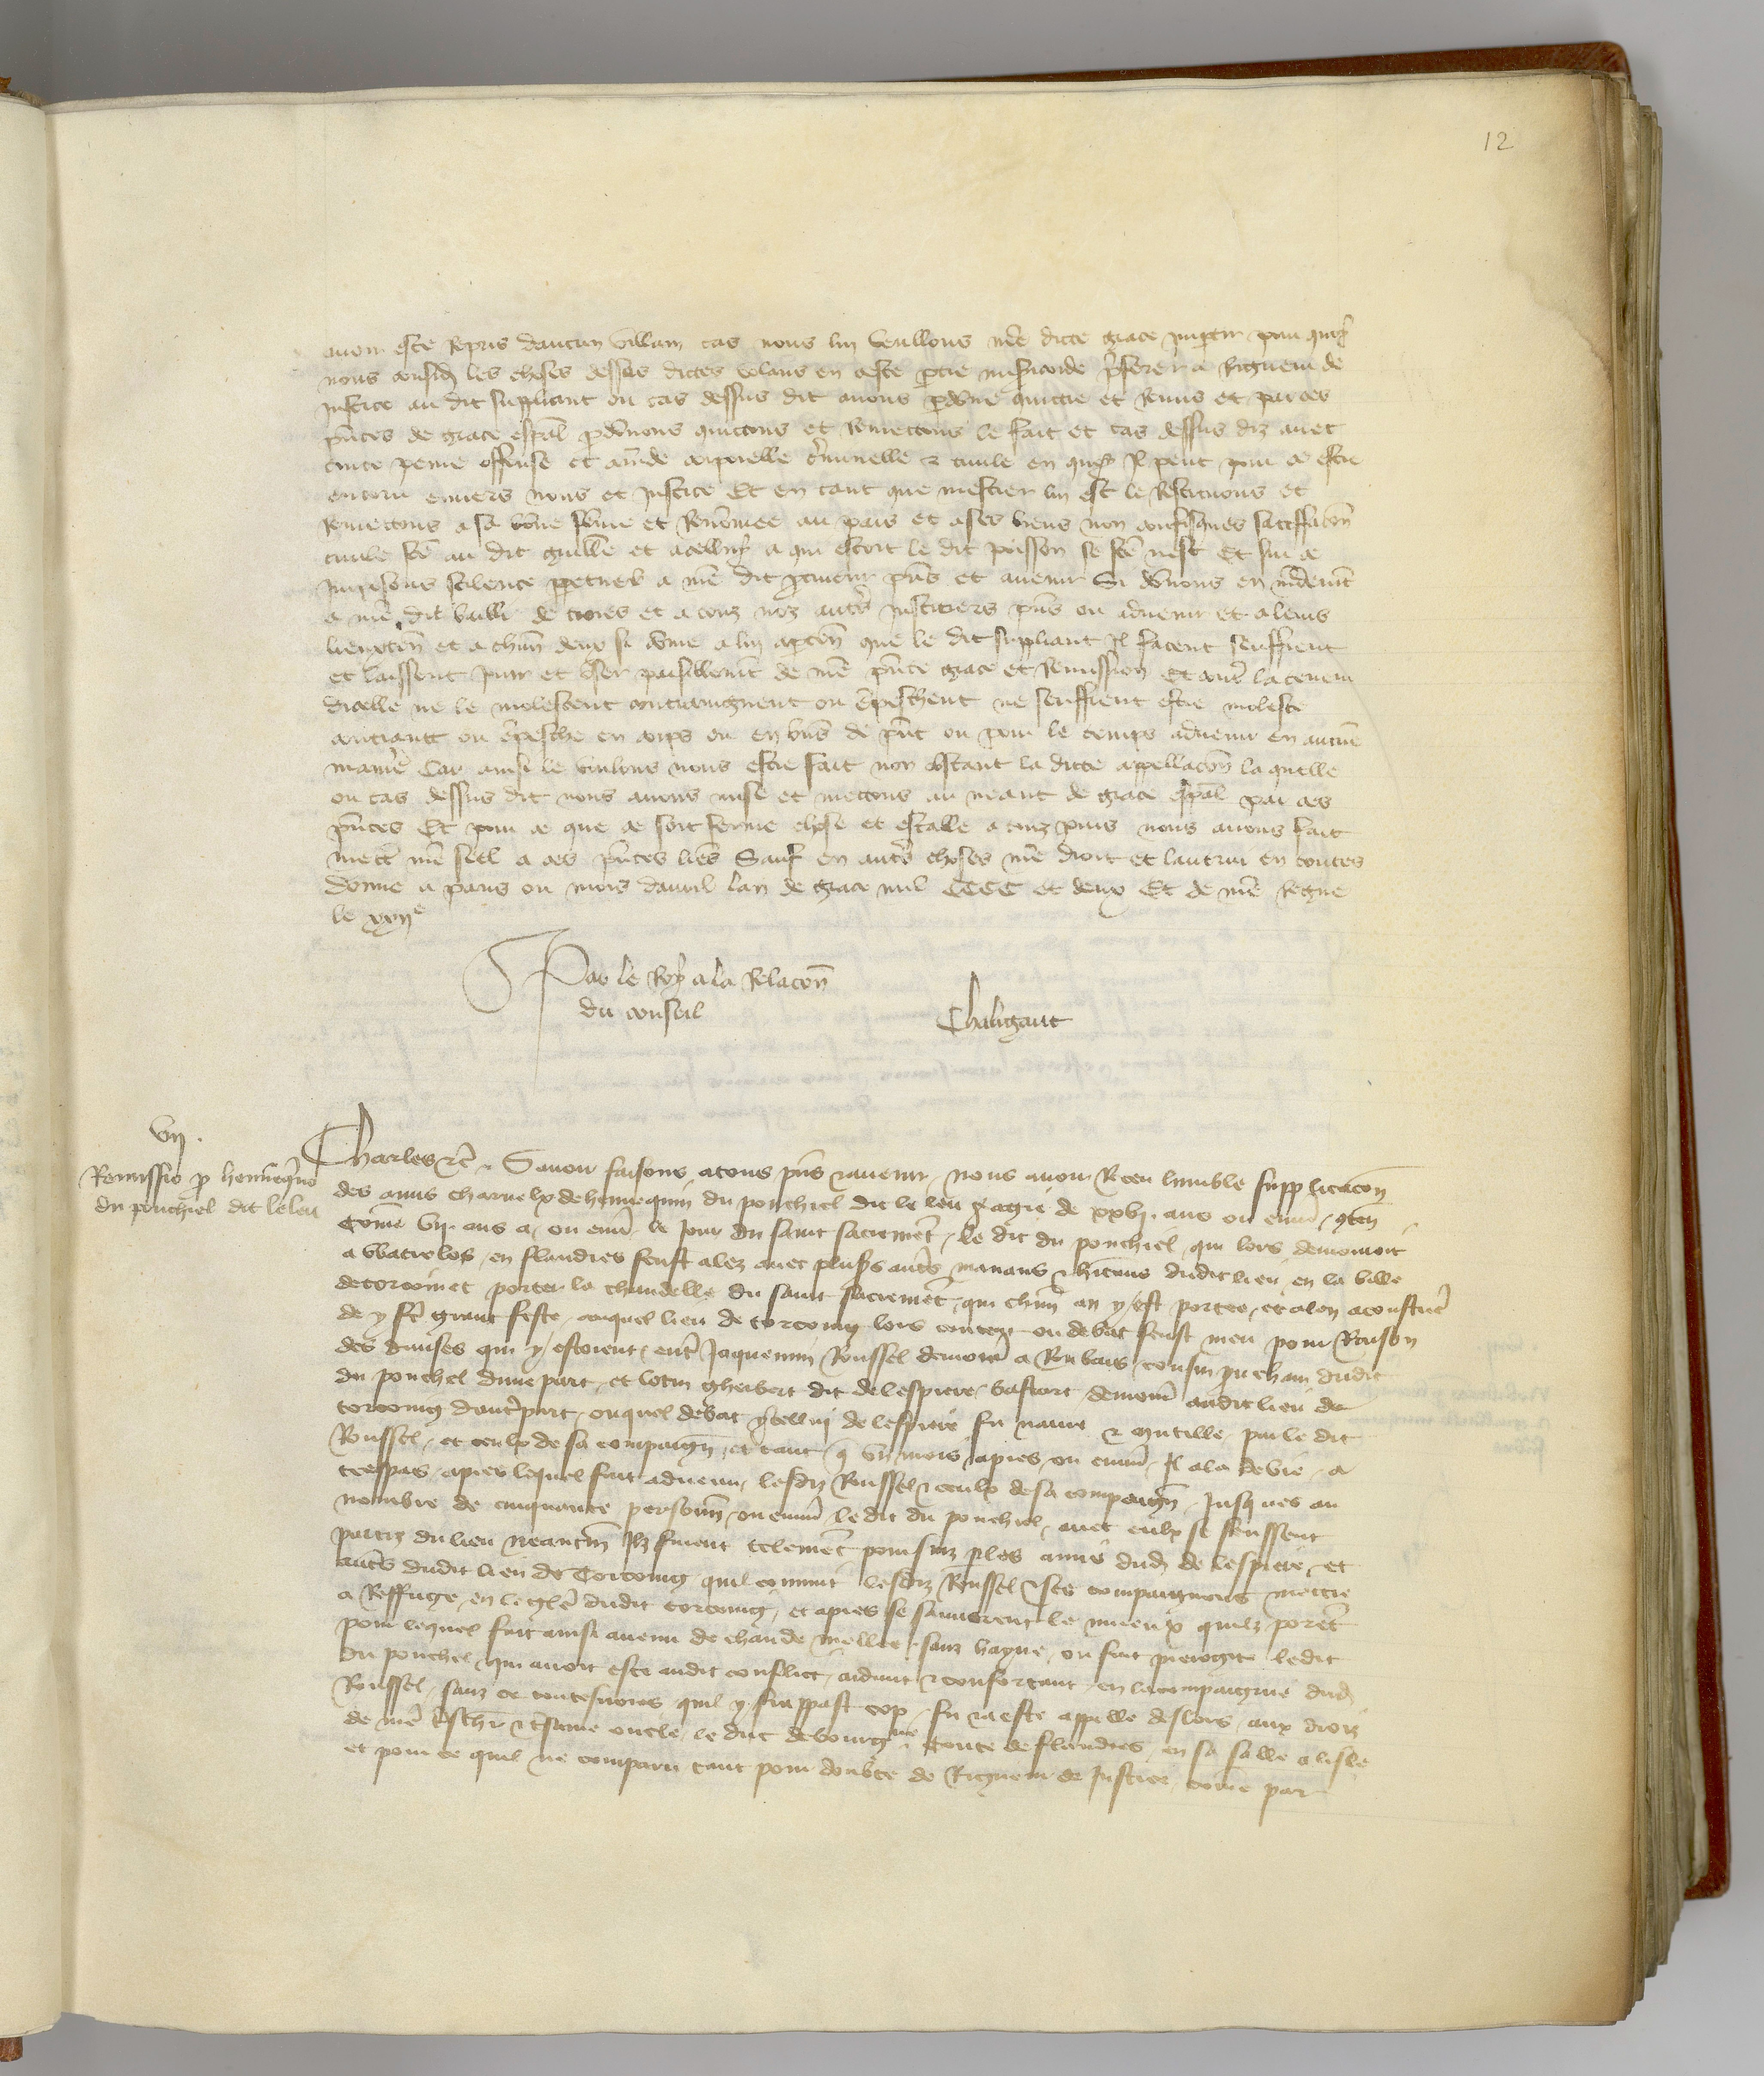 12
avoir esté repris daucun villain cas nous lui veullons nre dicte grace impartir pour quoy
nous consid les choses dessus dictes volans en ceste ptie misericorde pferer a rigueur de
justice au dit suppliant ou cas dessus dit avons pdonné quictié et remis et par ces
pntes de grace espal pdonnons quictons et remettons le fait et cas dessus diz avec
toute peine offense et amde corporelle criminelle & civile en quoy Il peut pour ce estre
encouru envers nous et justice Et en tant que mestier lui est le restituons et
remettons a sa bonne fame et renommee au pais et a ses biens non confisques satisffacon
civile fce au dit Guille et a celluy a qui estoit le dit poisson se fce nest Et sur ce
imposons scilence ppetuel a nre dit pcureur pns et avenir Si donnons en mandemt
a nre dit bailli de et a touz noz autrs justiciers pns ou advenir et a leurs
lieuxten et a chun deux si come a lui aptien que le dit suppliant Il facent seuffrent
et laissent joir et user paisiblemt de nre pnte grace et remission Et contre la teneur
dicelle ne le molestent contraingnent ou empeschent ne seuffrent estre molesté
contraint ou empesché en corps ou en biens de pnt ou pour le temps advenir en aucune
maniere Car ainsi le voulons nous estre fait non obstant la dicte appellacon la quelle
ou cas dessus dit nous avons mise et mettons au neant de grace espal par ces
pntes Et pour ce que ce soit ferme chose et estable a touz jours nous avons fait
mettre nre seel a ces pntes lres Sauf en autrs choses nre droit et lautrui en toutes
donné a paris ou mois davril lan de grace mil CCCC et deux Et de nre regne
le xxiie
Par le Roy a la relacon
du conseil
Chaligaut
vij.
Remissio p henneqno
du ponchiel dit le leu
Charles &c. Savoir faisons a tous pns & avenir nous avoir receu lumble supplicacon
des amis charnelx de hennequin du ponchiel dit le leu eagié de xxvj. ans ou envir, 9ten
Come vij. ans a, ou envir, le jour du saint sacremet, le dit du ponchiel, qui lors demouroit
a watrelos, en flandres feust alez avec plusrs autrs manans & hitens dudit lieu en la ville
de torcoin et porter la chandelle du saint sacremet, qui chun an y est portee, et a len acoustué
de y fe grant feste, auquel lieu de torcoing lors contens ou debat feust meu pour raison
des danses qui y estoient, entre Jaquemin Roussel demour a Roubais, cousin prochain dudit
du ponchel dune part, et lotin gheibert dit de lespiere, bastart demour audit lieu de
torcoing dautre part, ouquel debat ycelluy de lespiere fu navré & mutillé, par le dit
Roussel, et ceulx de sa compaign, et tant q un mois apres, ou envir, Il ala de vie, a
trespas, apres lequel fait advenu, lesdiz Roussel & ceulx de sa compaign, jusques au
nombre de cinquante personn, ou envir, le dit du ponchiel, avec eulx se feussent
partiz du lieu neantm Ilz furent telemet poursuiz p les amis dudz de lespiere, et
autrs dudit lieu de Torcoing quil convint lesdiz Roussel & ses compaignons mettre
a reffuge, en leglise dudit torcoing, et apres se sauverent le mieulx quilz porent
pour lequel fait ainsi avenu de chaude mellee, sanz hayne, ou fait precogité ledit
du ponchel, qui avoit esté audit conflict, aidant & confortant en la compaignie dudz
Roussel, sanz ce toutesvoies quil y frappast cop, fu & a esté appellé deslors, aux droiz
de nre treschr & tresamé oncle le duc de bourgne & conte de flandres, en sa salle a lisle
et pour ce quil ne comparu tant pour doubte de rigueur de justice, come par